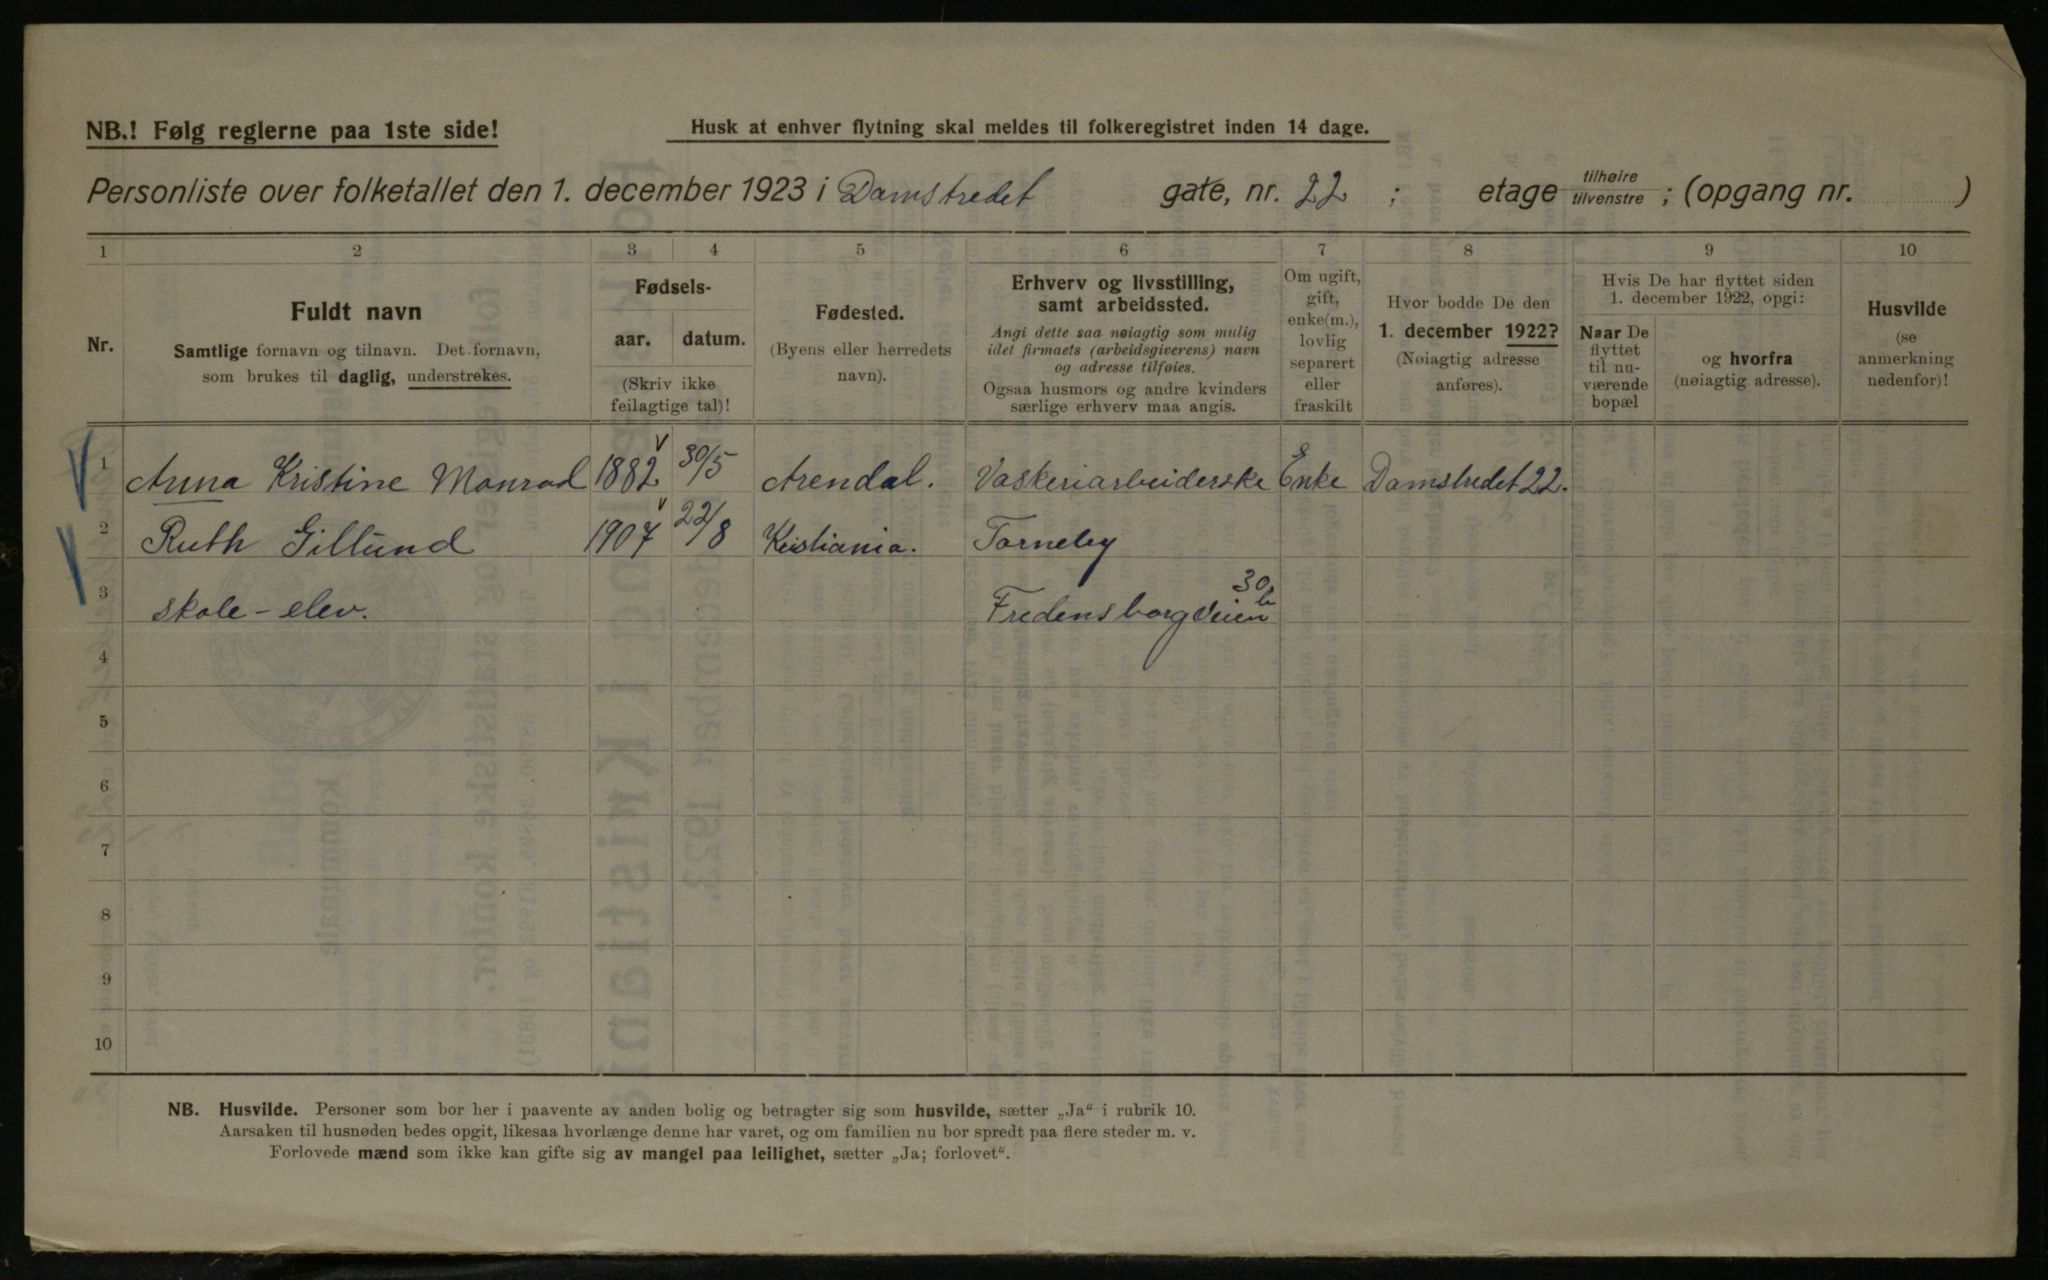 NB.! Følg reglerne paa 1ste side!
Husk at enhver flytning skal meldes til folkeregistret inden 14 dage.
Personliste over folketallet den 1. december 1923 i Damstredet gate, nr. 22 ; etage tilhøire tilvenstre ; (opgang nr. )
1 2 3 4 5 6 7 8 9 10
Nr.
Fuldt navn
Samtlige fornavn og tilnavn. Det fornavn,
som brukes til daglig, understrekes.
Fødsels-
aar. datum.
(Skriv ikke
feilagtige tal)!
Fødested.
(Byens eller herredets
navn).
Erhverv og livsstilling,
samt arbeidssted.
Angi dette saa nøiagtig som mulig
idet firmaets (arbeidsgiverens) navn
og adresse tilføies.
Ogsaa husmors og andre kvinders
særlige erhverv maa angis.
Om ugift,
gift,
enke(m.),
lovlig
separert
eller
fraskilt
Hvor bodde De den
1. december 1922?
(Nøiagtig adresse
anføres).
Hvis De har flyttet siden
1. december 1922, opgi:
Naar De
flyttet
til nu-
værende
bopæl
og hvorfra
(nøiagtig adresse).
Husvilde
(se
anmerkning
nedenfor)!
1 Anna Kristine Monrad 1882 30/5 Arendal. Vaskeriarbeiderske Enke Damstredet 22.
2 Ruth Gillund 1907 22/8 Kristiania.
3 skole-elev. Fredensborgveien 30 b
4
5
6
7
8
9
10
NB. Husvilde. Personer som bor her i paavente av anden bolig og betragter sig som husvilde, sætter „Ja“ i rubrik 10.
Aarsaken til husnøden bedes opgit, likesaa hvorlænge denne har varet, og om familien nu bor spredt paa flere steder m. v.
Forlovede mænd som ikke kan gifte sig av mangel paa leilighet, sætter „Ja; forlovet“.